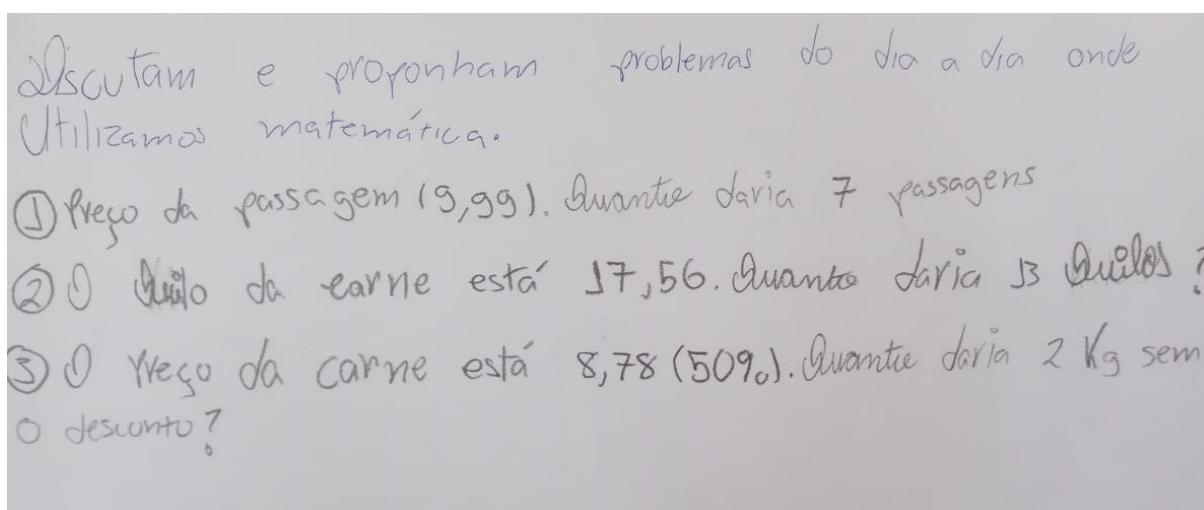 Discutam e proponham problemas do dia a dia onde
Utilizamos matemática.
① Preço da passagem (9,99). Quanto daria 7 passagens
② O Quilo da carne está 17,56. Quanto daria 13 Quilos?
③ O Preço da carne está 8,78 (50%). Quanto daria 2 Kg sem
o desconto?